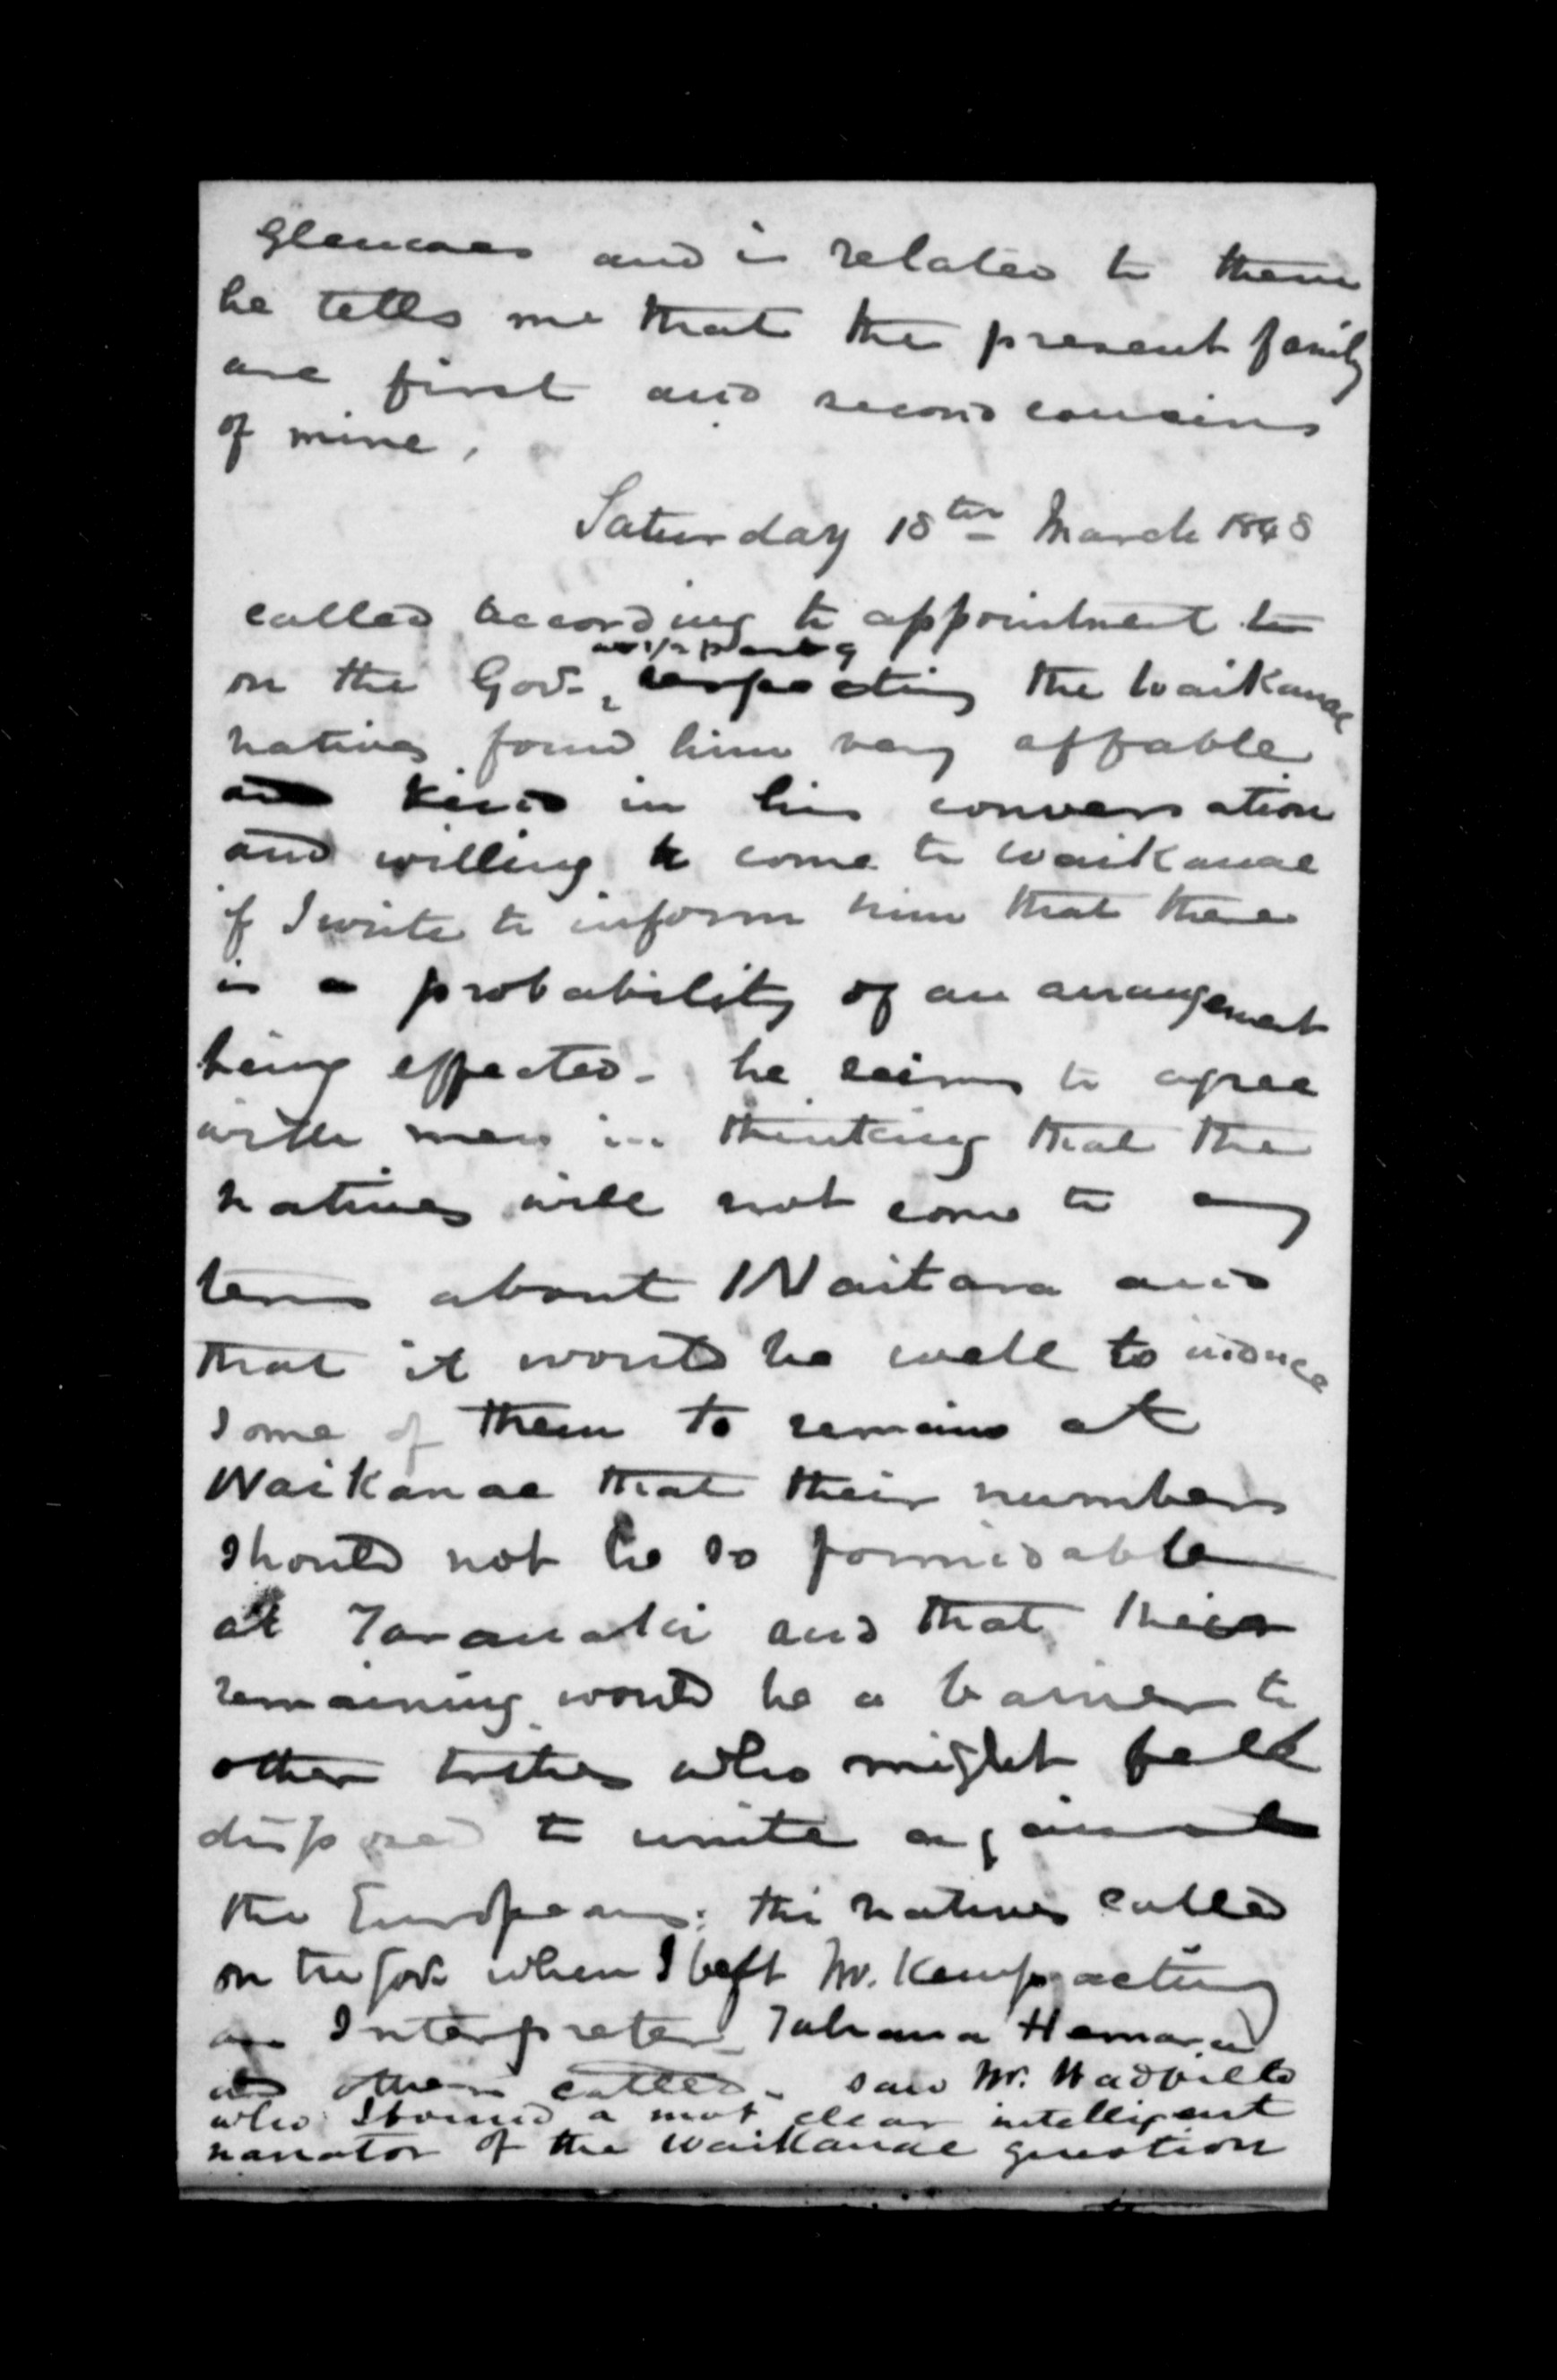 Glencoes and is related to them
he tells me that the present family
are first and second cousins
of mine.
Saturday 18th March 1848
called according to appointment to
at 1/2 past 9
on the Govr., respecting the Waikanae
natives found him very affable
and kind in his conversation
and willing to come to Waikanae
if I write to inform him that there
is a probability of an arrangement
being effected - he seems to agree
with men in thinking that the
natives will not come to any
terms about Waitara and
that it would be well to induce
some of them to remain at
Waikanae that their numbers
should not be so formidable
at Taranaki and that their
remaining would be a barrier to
other tribes who might feel
disposed to unite against
the Europeans: the natives called
on the Govr when I left Mr. Kemp acting
as Interpreter - Tahana Hemara
and others called - saw Mr.
who I found a most clear intelligent
narrator of the Waikanae question